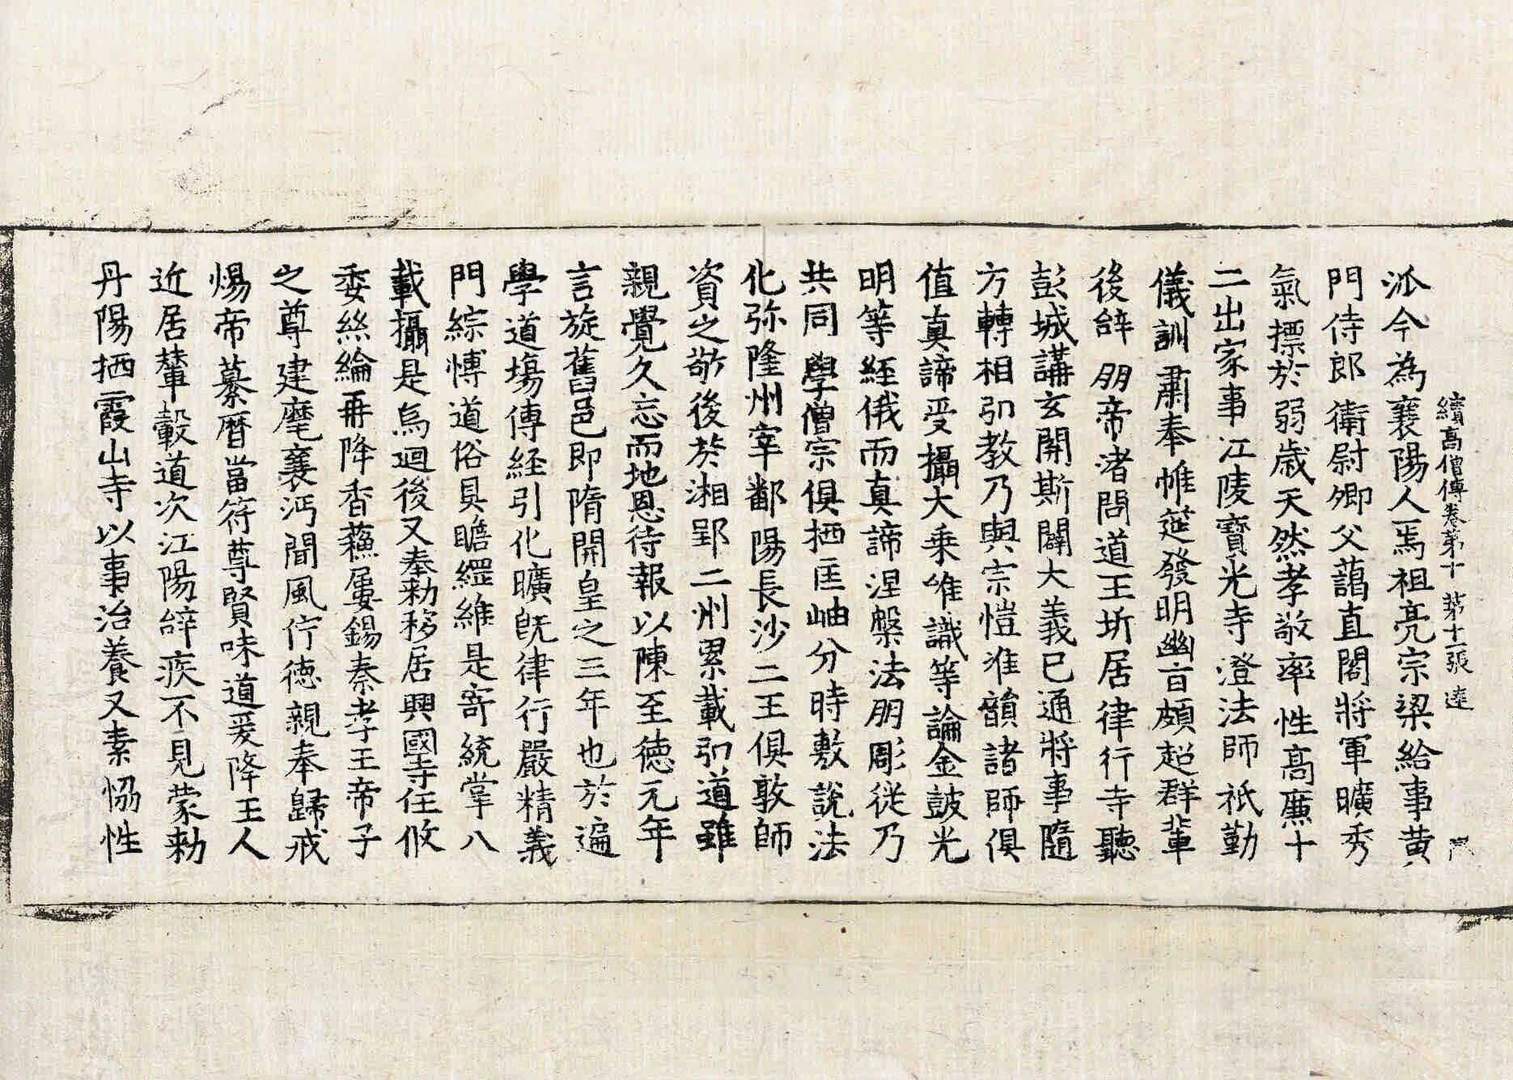 續高僧傳卷第十 第十二張 達
派今為襄陽人焉祖亮宗梁給事黄
門侍郎衛尉卿父藹直閤將軍曠秀
氣摽於弱歳天然孝敬率性高廉十
二出家事江陵寶光寺澄法師祇勤
儀訓肅奉帷筵發明幽旨頗超群輩
後辝朋帝渚問道王圻居律行寺聽
彭城講玄開斯闢大義已通將事隨
方轉相引教乃與宗愷准韻諸師俱
值真諦受攝大乗唯識等論金鼓光
明等経俄而真諦涅槃法朋彫従乃
共同學僧宗俱栖匡岫分時敷說法
化弥隆州宰鄱陽長沙二王俱敦師
資之敬後於湘郢二州累載引道雖
親覺久忘而地恩待報以陳至徳元年
言旋舊邑即隋開皇之三年也於遍
學道場傳経引化曠既律行嚴精義
門綜愽道俗具瞻纒維是寄統掌八
載攝是烏迴後又奉勑移居興國寺任攸
委絲綸再降香蘓屢錫秦孝王帝子
之尊建麾襄沔聞風佇徳親奉歸戒
煬帝纂曆當符尊賢味道爰降王人
近居輦轂道次江陽辝疾不見蒙勑
丹陽栖霞山寺以事治養又素恊性